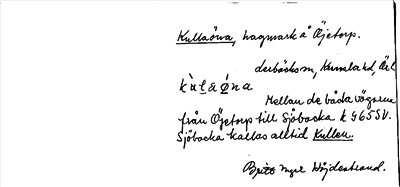 Kullaöna, hagmark å Öjetorp.
derbäcksm, Kumla hd, Öl
kùlaøna
Mellan de båda vägarna
från Öjetorp till Sjöbacka k 9655V.
Sjöbacka kallas alltid Kullen.
Britt Inger Höjdestrand.